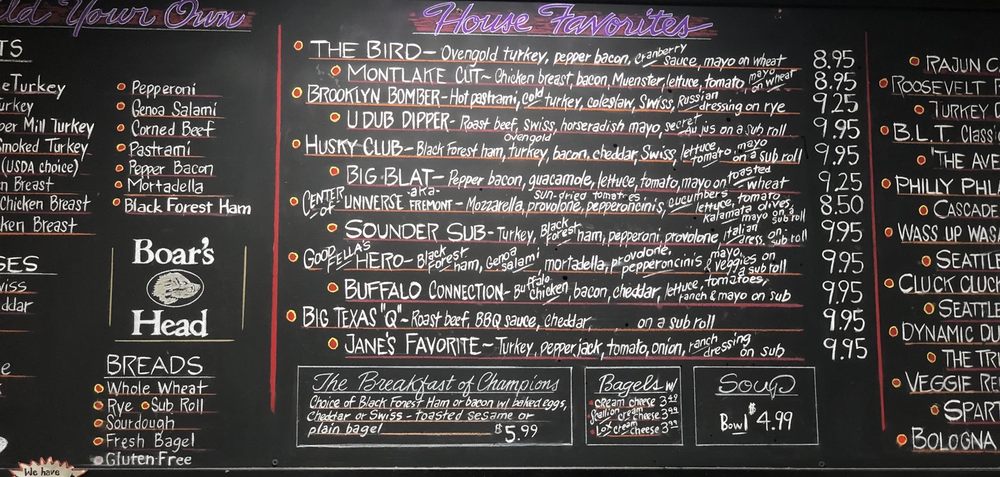 ld Your Own
TS
eTurkey
urkey
per Mill Turkey
moked Turkey
(USDA choice)
n Breast
Chicken Breast
ken Breast
SES
wiss
ddar
e
We have
Pepperoni
Genoa Salami
Corned Beef
Pastrami
Pepper Bacon
Mortadella
Black Forest Ham
Boar's
Head
BREADS
Whole Wheat
Rye Sub Roll
Sourdough
Fresh Bagel
Gluten-Free
House Favorites
THE BIRD- Ovengold turkey, pepper bacon, cranberry sauce, mayo on wheat 8.95
MONTLAKE CUT- Chicken breast, bacon, Muenster, lettuce, tomato, mayo on wheat 8.95
BROOKLYN BOMBER- Hot pastrami, cold turkey, coleslaw, Swiss, Russian dressing on rye 9.25
U DUB DIPPER- Roast beef, swiss, horseradish mayo, secret au jus on a sub roll 9.95
HUSKY CLUB- Black Forest ham, ovengold turkey, bacon, cheddar, Swiss, lettuce tomato mayo on a sub roll 9.95
BIG BLAT- Pepper bacon, guacamole, lettuce, tomato, mayo on toasted wheat 9.25
CENTER of UNIVERSE -aka- FREMONT- Mozzarella, provolone, sun-dried tomatoes, pepperoncinis, cucumbers, lettuce, tomato kalamata olives, mayo on a sub roll 8.50
SOUNDER SUB- Turkey, Black Forest ham, pepperoni provolone italian dress. on sub roll 9.95
GOODFELLA'S HERO- Black Forest ham, Genoa salami, mortadella, provolone, pepperoncinis, mayo, & veggies on a sub roll 9.95
BUFFALO CONNECTION- Buffalo chicken, bacon, cheddar, lettuce, tomatoes, ranch & mayo on sub 9.95
BIG TEXAS "Q"- Roast beef, BBQ sauce, cheddar, on a sub roll 9.95
JANE'S FAVORITE- Turkey, pepper jack, tomato, onion, ranch dressing on sub 9.95
The Breakfast of Champions
Choice of Black Forest Ham or bacon w/ baked eggs,
cheddar or Swiss - toasted sesame or
plain bagel $5.99
Bagels w/
cream cheese 3.49
Scallion cream cheese 3.99
Lox cream cheese 3.99
Soup
Bowl $4.99
RAJUN C
ROOSEVELT
TURKEY
B.L.T. Class
THE AVE
PHILLY PHL
CASCADE
WASS UP WAS
SEATTLE
CLUCK CLUC
SEATTL
DYNAMIC DU
THE TR
VEGGIE RE
SPAR
BOLOGNA